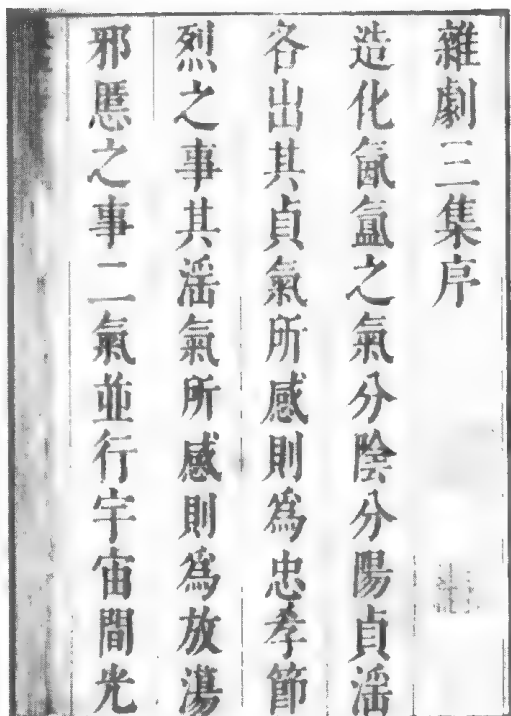 雜劇三集序
造化氤氳之氣分陰分陽貞淫
各出其貞氣所感則為忠孝節
烈之事其淫氣所感則為放蕩
邪慝之事二氣並行宇宙間光